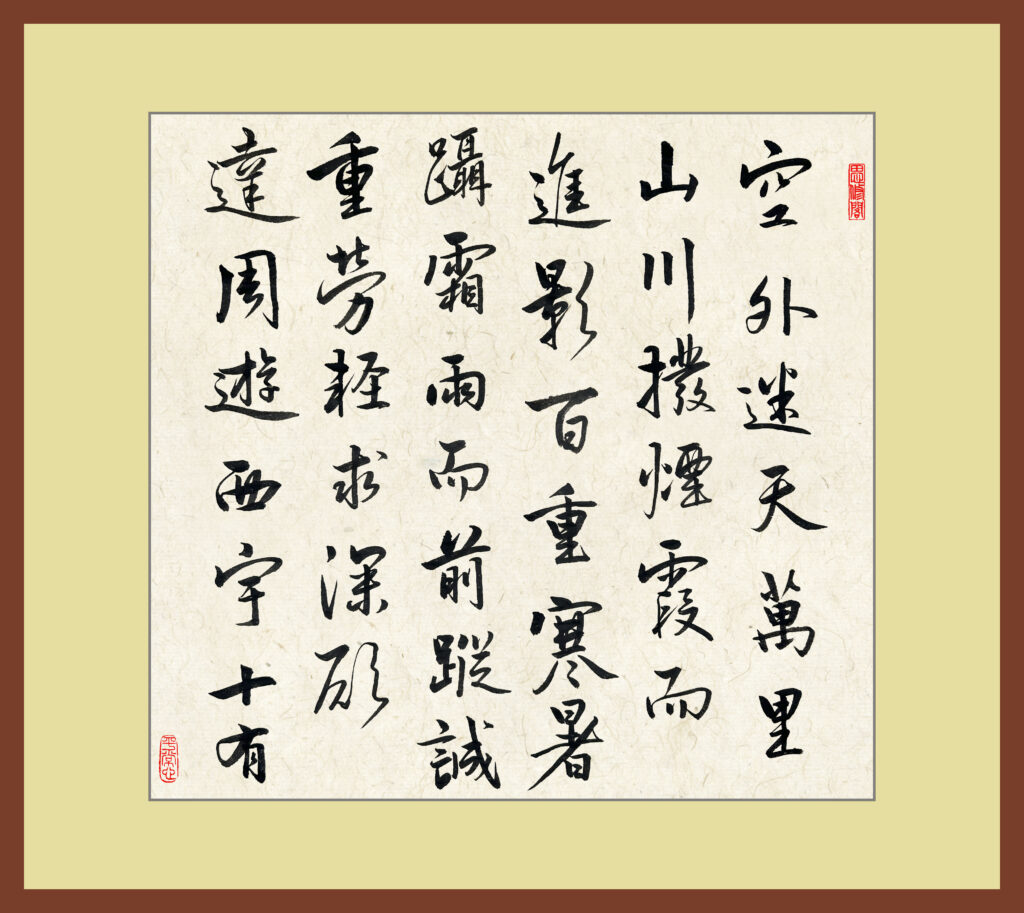 空外迷天萬里
山川撥煙霞而
進影百重寒暑
躡霜雨而前蹤誠
重勞輕求深願
達周遊西宇十有
平常心